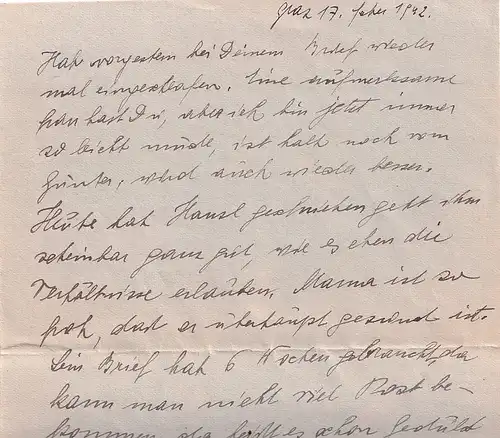 Graz 17. Feber 1942.
Hab vorgestern bei Deinem Brief wieder
mal eingeschlafen. Eine aufmerksame
Frau hast Du, aber ich bin jetzt immer
so leicht müde, ist halt noch vom
Gunter, wird auch wieder besser.
Heute hat Hansl geschrieben geht ihm
scheinbar ganz gut, wie es eben die
Verhältnisse erlauben. Mama ist so
froh, daß er überhaupt gesund ist.
Sein Brief hat 6 Wochen gebraucht, da
kann man nicht viel Post be-
kommen, da heißt es schon Geduld